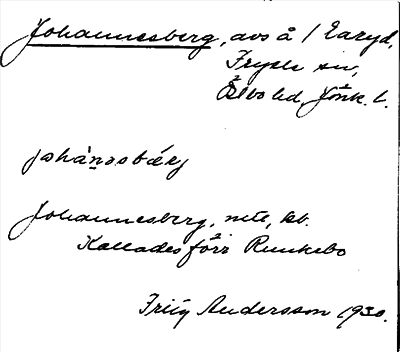 Johannesberg, avs å 1 Earyd,
Fryele sn,
Östbo hd, Jönk. l.
johànəsbærj
Johannesberg, mtl, kb.
Kallades förr Runkebo
Frith Andersson 1930.